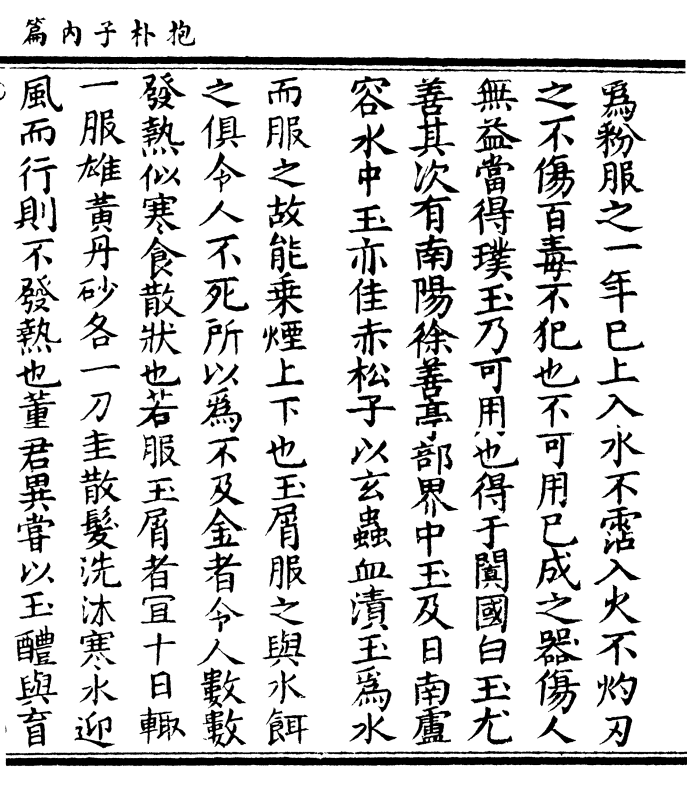 抱朴子內篇
爲粉服之一年已上入水不霑入火不灼刃
之不傷百毒不犯也不可用已成之器傷人
無益當得璞玉乃可用也得于闐國白玉尤
善其次有南陽徐善亭部界中玉及日南盧
容水中玉亦佳赤松子以玄蟲血漬玉爲水
而服之故能乗煙上下也玉屑服之與水餌
之俱令人不死所以爲不及金者令人數數
發熱似寒食散狀也若服玉屑者冝十日輙
一服雄黃丹砂各一刀圭散髮洗沐寒水迎
風而行則不發熱也董君異甞以玉醴與盲